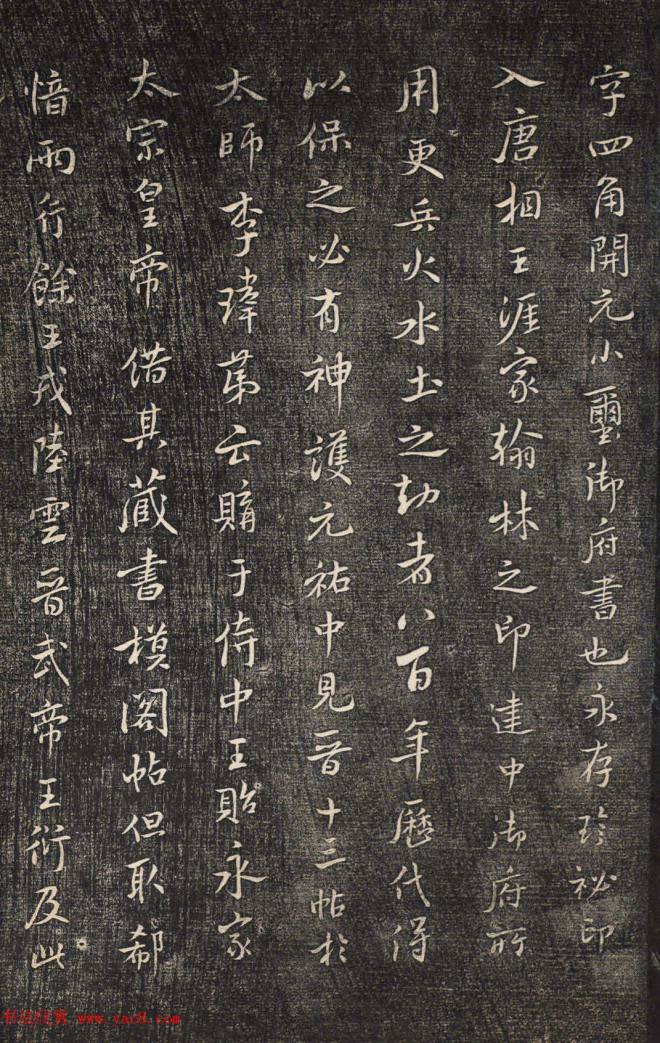 字四角開元小璽御府書也永存珍祕印
入唐相王涯家翰林之印建中御府所
用更兵火水土之劫者八百年歷代得
以保之必有神護元祐中見晉十三帖於
太師李瑋第云購于侍中王貽永家
太宗皇帝借其藏書模閣帖但取郗
愔兩行餘王戎陸雲晉武帝王衍及此
www.yac8.com